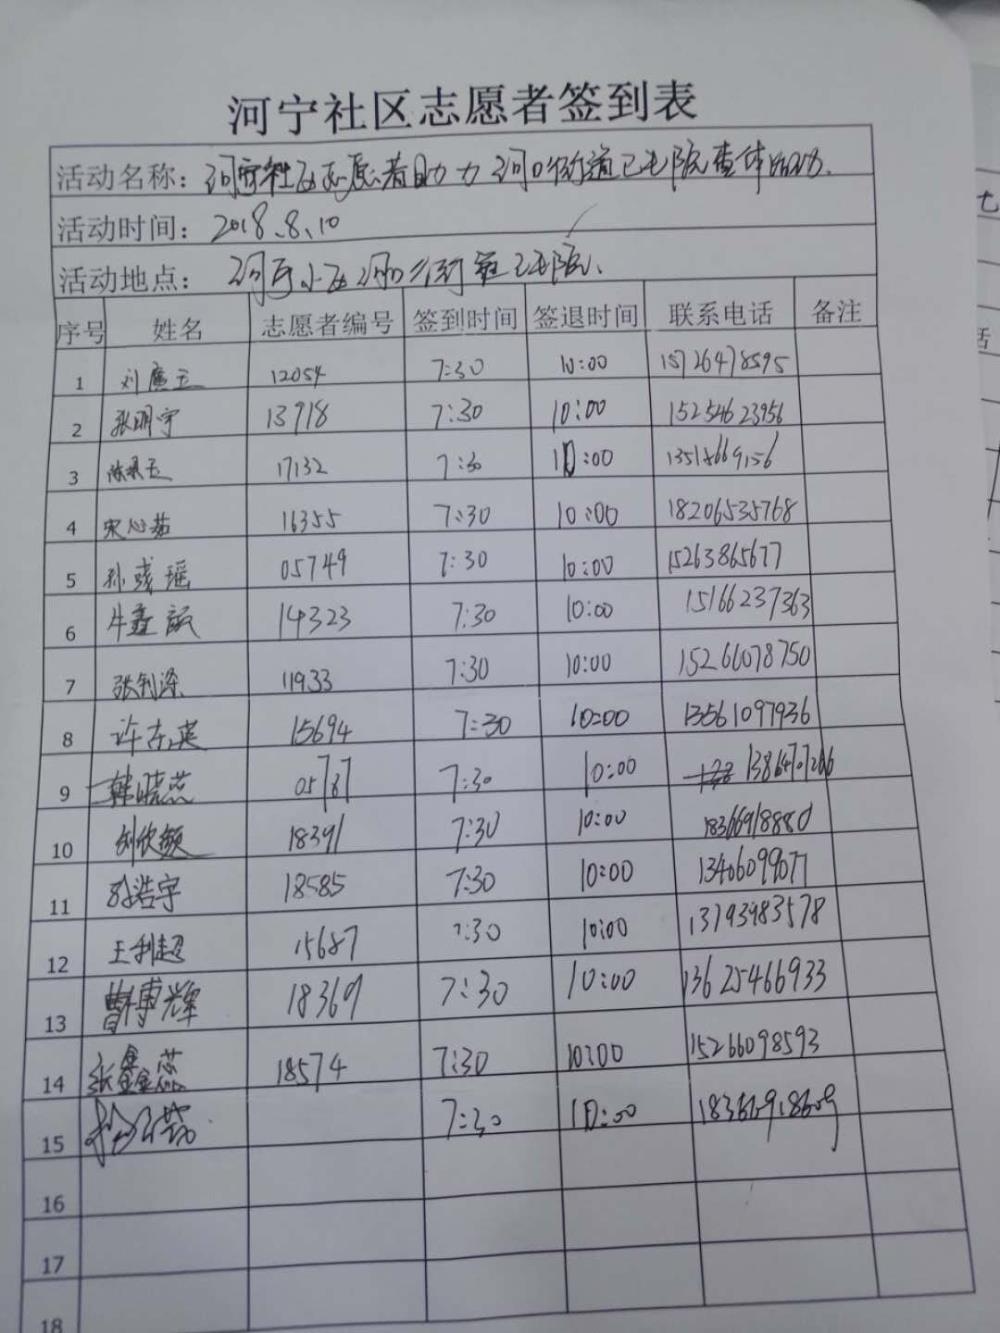 河宁社区志愿者签到表
活动名称：河宁社区志愿者助力河口街道卫生院查体活动.
活动时间：2018.8.10
活动地点：河口街道卫生院.
序号 姓名 志愿者编号 签到时间 签退时间 联系电话 备注
1 刘应玉 12054 7:30 10:00 15726478595
2 张明宇 13918 7:30 10:00 15254623956
3 17132 7:30 10:00
4 宋心茹 16355 7:30 10:00 18206535768
5 孙彧瑶 05749 7:30 10:00 15263865677
6 牛鑫 14323 7:30 10:00 15166237363
7 张利深 11933 7:30 10:00 15266078750
8 许东英 15694 7:30 10:00 13561097936
9 韩晓蕊 05787 7:30 10:00 13864707266
10 刘欣颖 18391 7:30 10:00 18366918880
11 孙浩宇 18585 7:30 10:00 13406099077
12 王利超 15687 7:30 10:00 13793983578
13 曹博辉 18369 7:30 10:00 13625466933
14 张鑫蕊 18574 7:30 10:00 15266098593
15 7:30 10:00
16
17
18